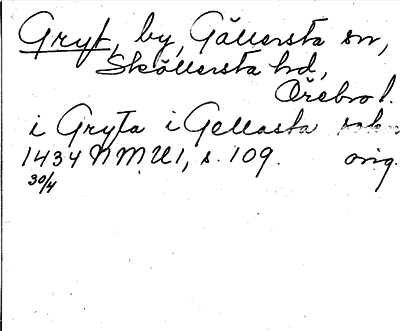 Gryt, by, Gällersta sn,
Sköllersta hd,
Örebro l.
i Gryta i Gellasta sokn
1434 NMU1, s. 109. orig.
30/4